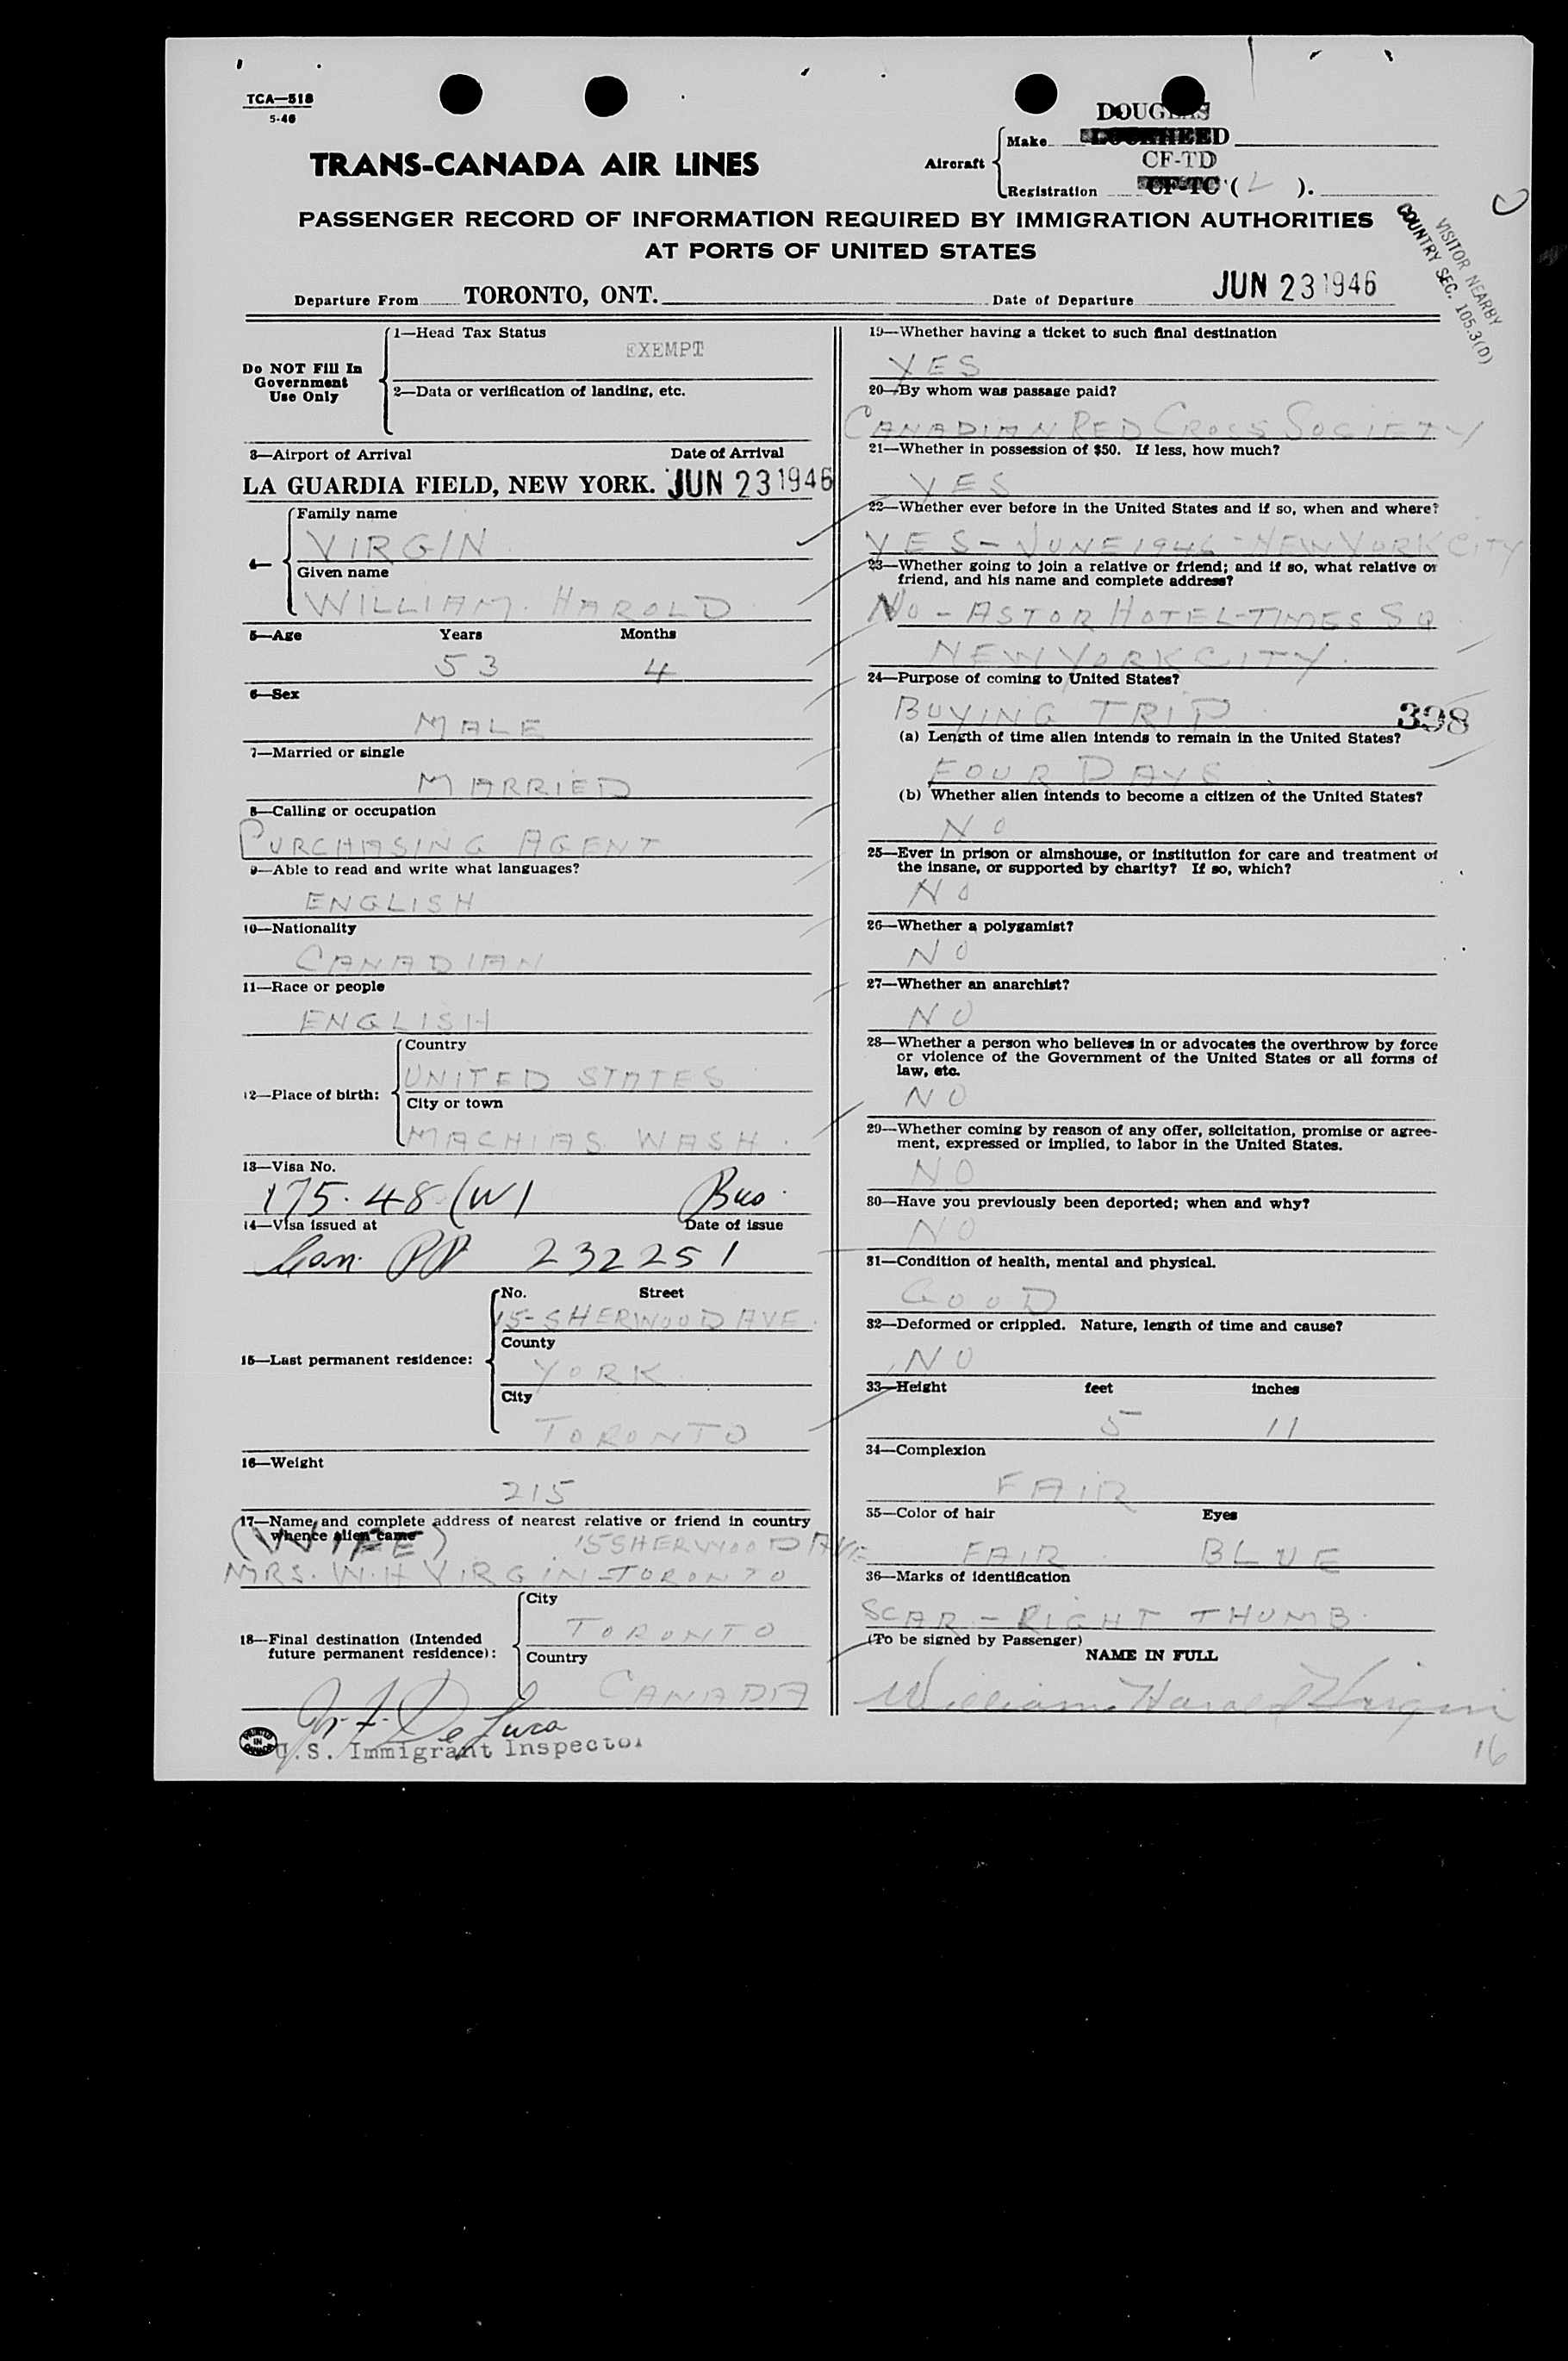 TCA—518
5-46
TRANS-CANADA AIR LINES
Aircraft
DOUGLAS
Make LOCKHEED
CF-TD
Registration CF-TC (L).
PASSENGER RECORD OF INFORMATION REQUIRED BY IMMIGRATION AUTHORITIES
AT PORTS OF UNITED STATES
VISITOR NEARBY
COUNTRY SEC. 105.3(D)
Departure From TORONTO, ONT. Date of Departure JUN 23 1946
Do NOT Fill In
Government
Use Only
1—Head Tax Status
EXEMPT
2—Data or verification of landing, etc.
3—Airport of Arrival Date of Arrival
LA GUARDIA FIELD, NEW YORK. JUN 23 1946
4—
Family name
VIRGIN
Given name
WILLIAM. HAROLD
5—Age Years Months
53 4
6—Sex
MALE
7—Married or single
MARRIED
8—Calling or occupation
PURCHASING AGENT
9—Able to read and write what languages?
ENGLISH
10—Nationality
CANADIAN
11—Race or people
ENGLISH
12—Place of birth:
Country
UNITED STATES
City or town
MACHIAS WASH.
13—Visa No.
175.48 (W) Bus.
14—Visa issued at Date of issue
Can. PP 232251
15—Last permanent residence:
No. Street
15-SHERWOOD AVE.
County
YORK
City
TORONTO
16—Weight
215
17—Name and complete address of nearest relative or friend in country
whence alien came
(WIFE) 15 SHERWOOD AVE
MRS. W.H VIRGIN-TORONTO
18—Final destination (Intended
future permanent residence):
City
TORONTO
Country
CANADA
De Luca
U.S. Immigrant Inspector
19—Whether having a ticket to such final destination
YES
20—By whom was passage paid?
CANADIAN RED CROSS SOCIETY
21—Whether in possession of $50. If less, how much?
YES
22—Whether ever before in the United States and if so, when and where?
YES - JUNE 1946 - NEW YORK CITY
23—Whether going to join a relative or friend; and if so, what relative or
friend, and his name and complete address?
NO - ASTOR HOTEL-TIMES SQ
NEW YORK CITY.
24—Purpose of coming to United States?
BUYING TRIP 398
(a) Length of time alien intends to remain in the United States?
FOUR DAYS
(b) Whether alien intends to become a citizen of the United States?
NO
25—Ever in prison or almshouse, or institution for care and treatment of
the insane, or supported by charity? If so, which?
NO
26—Whether a polygamist?
NO
27—Whether an anarchist?
NO
28—Whether a person who believes in or advocates the overthrow by force
or violence of the Government of the United States or all forms of
law, etc.
NO
29—Whether coming by reason of any offer, solicitation, promise or agree-
ment, expressed or implied, to labor in the United States.
NO
30—Have you previously been deported; when and why?
NO
31—Condition of health, mental and physical.
GOOD
32—Deformed or crippled. Nature, length of time and cause?
NO
33—Height feet inches
5 11
34—Complexion
FAIR
35—Color of hair Eyes
FAIR BLUE
36—Marks of identification
SCAR - RIGHT THUMB.
(To be signed by Passenger)
NAME IN FULL
William Harold Virgin
16